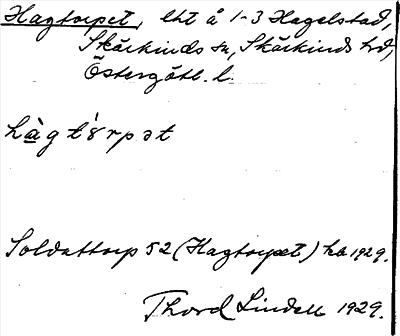 Hagtorpet, lht å 1-3 Hagelstad,
Skärkinds sn, Skärkinds hd,
Östergötl. l.
hàgtòrpət
Soldattorp 52 (Hagtorpet) hb 1929.
Thord Lindell 1929.